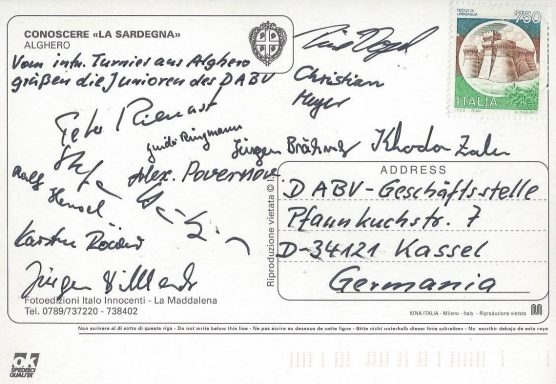 CONOSCERE «LA SARDEGNA»
ALGHERO
Vom intn. Turnier aus Alghero
grüßen die Junioren des DABV
Christian
Meyer
Peter Rienast
Guido Ringmann
Jürgen Brähmer
Khoder Zaher
Ralf
Hensel
Alex. Povernov
Karsten Röwer
Jürgen
ROCCA DI
URBISAGLIA
750
ITALIA
ADDRESS
DABV-Geschäftsstelle
Pfannkuchstr. 7
D-34121 Kassel
Germania
Riproduzione vietata ©
Fotoedizioni Italo Innocenti - La Maddalena
Tel. 0789/737220 - 738402
KINA ITALIA - Milano - Italy - Riproduzione vietata
Non scrivere al di sotto di questa riga - Do not write below this line - Ne pas écrire au dessous de cette ligne - Bitte nicht unterhalb dieser linie schreiben - No escribir debajo de esta raya
OK
SPEDISCI
QUALITÀ